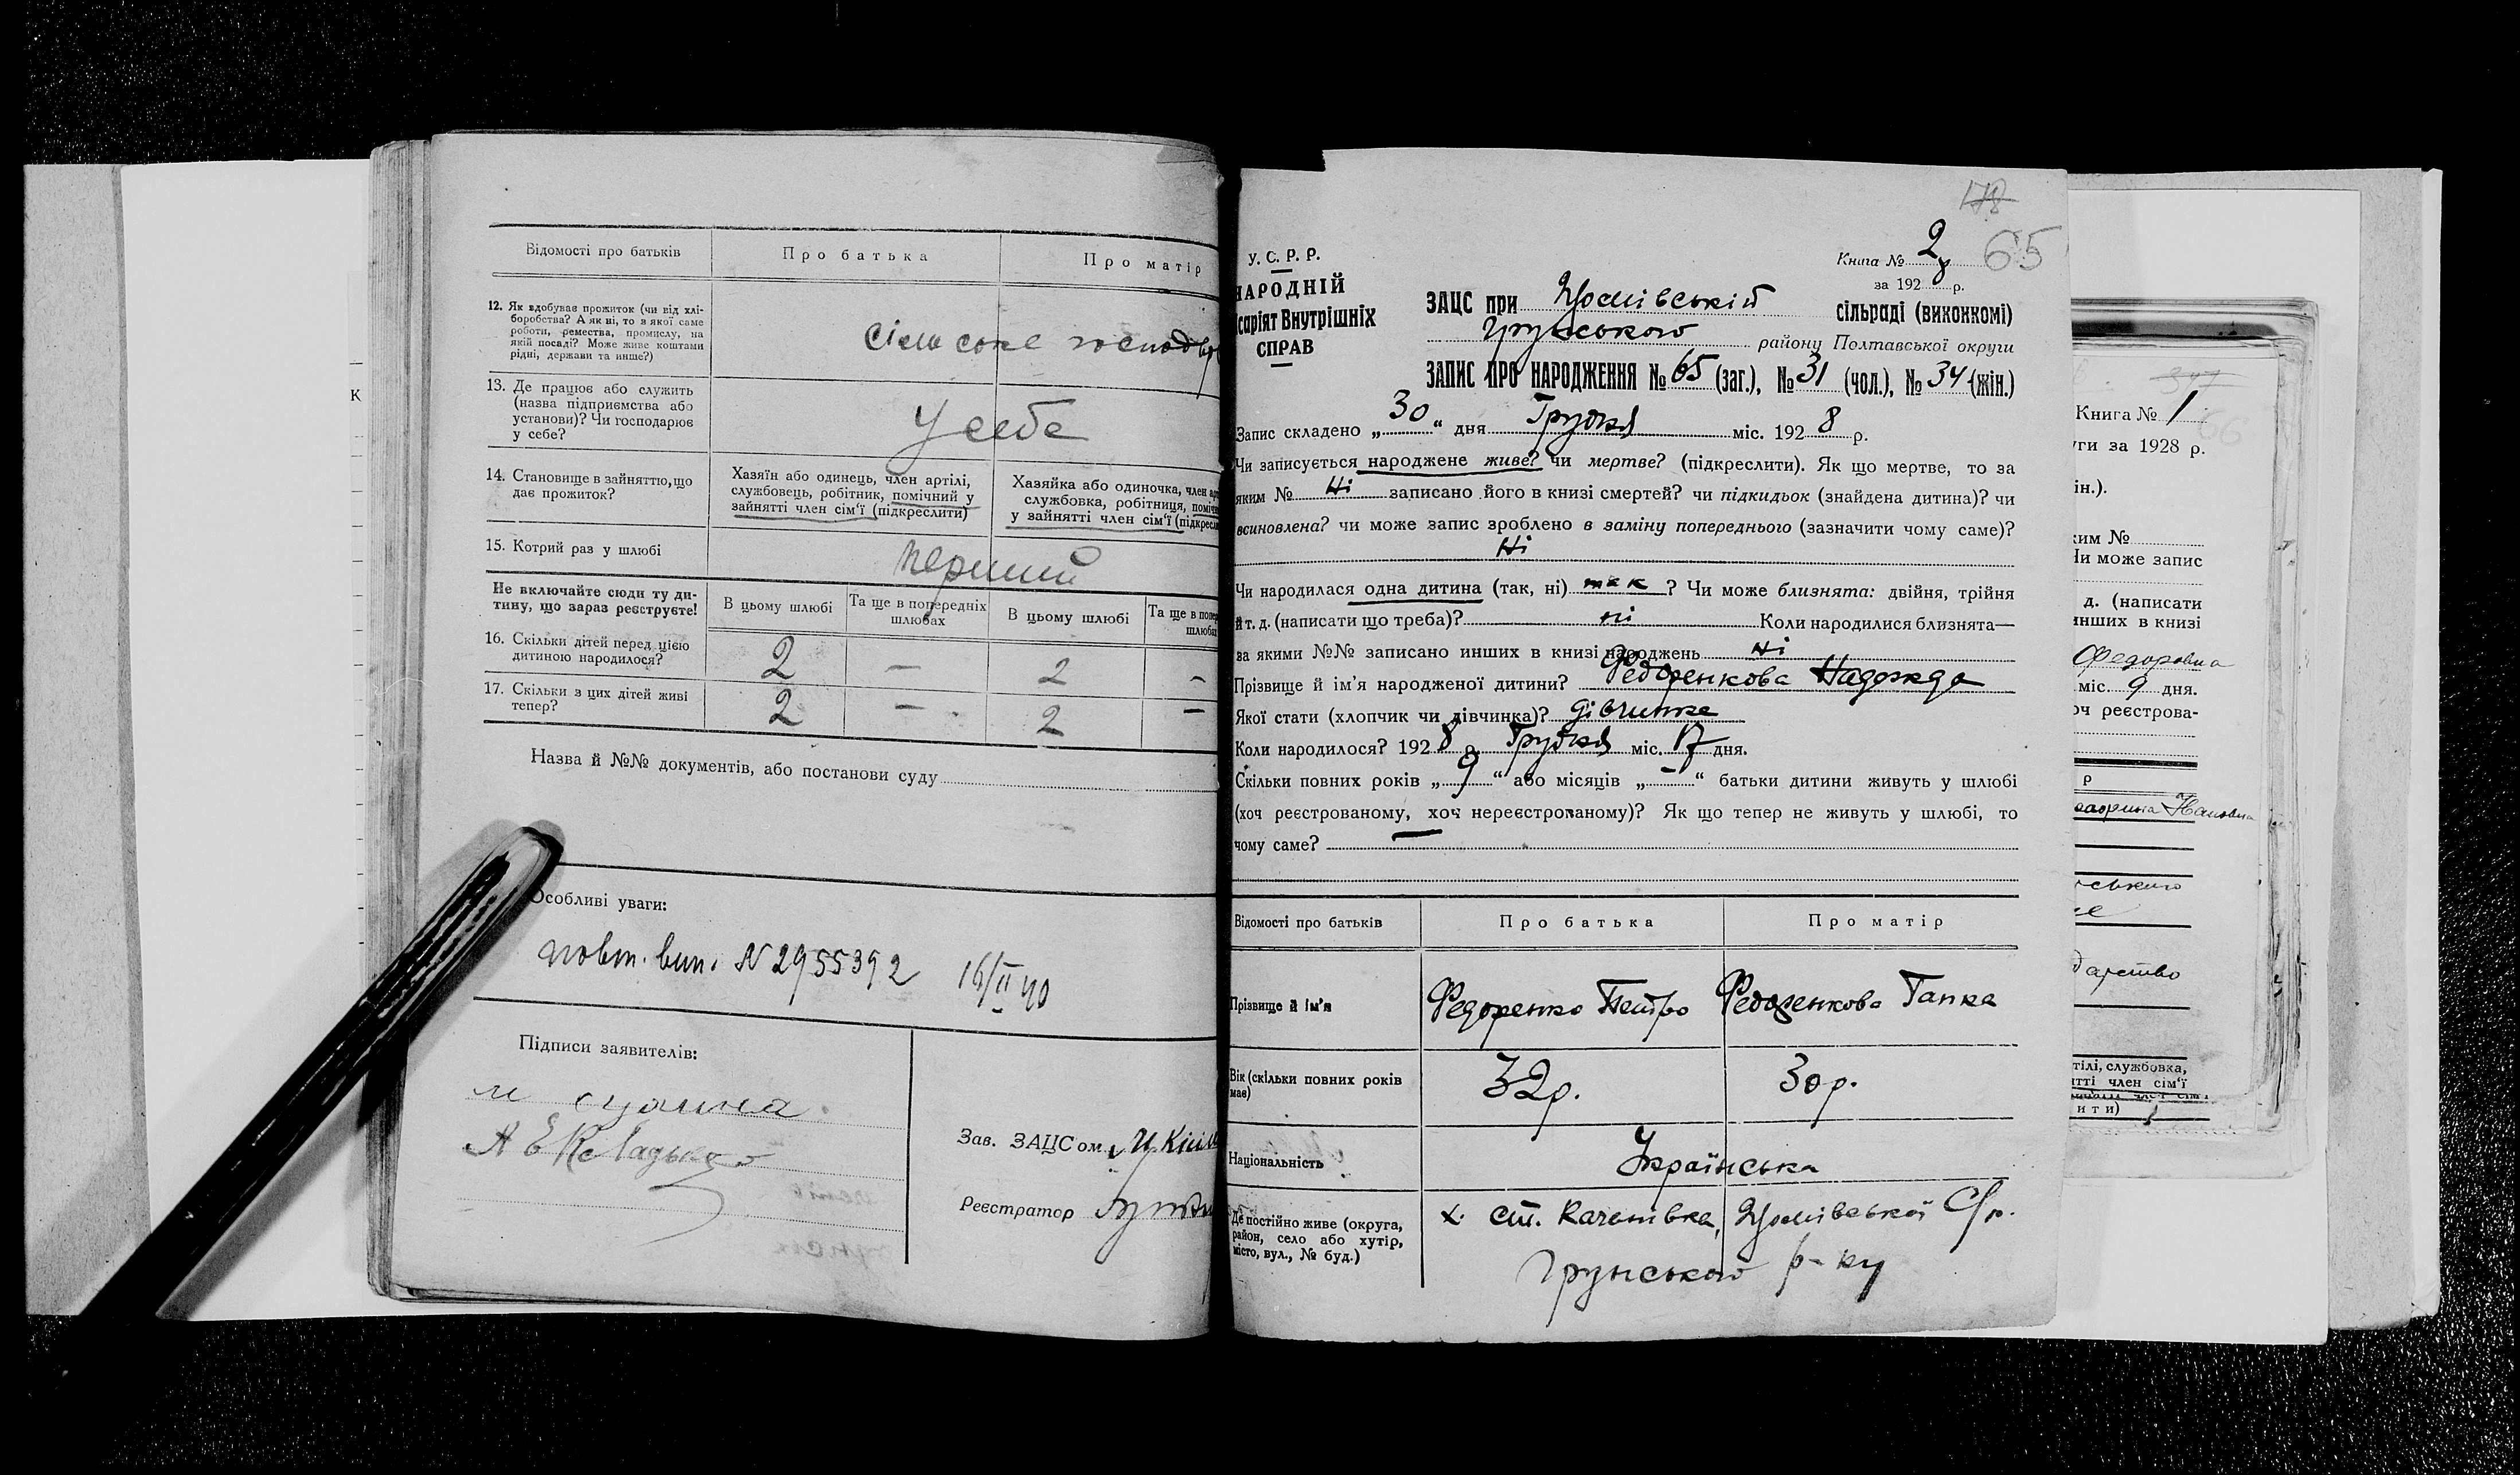 Відомості про батьків
Про батька
Про матір
12. Як здобуває прожиток (чи від хлі-
боробства? А як ні, то з якої саме
роботи, ремества, промислу, на
якій посаді? Може живе коштами
рідні, держави та инше?)
сільське господар
13. Де працює або служить
(назва підприємства або
установи)? Чи господарює
у себе?
У себе
14. Становище в зайняттю, що
дає прожиток?
Хазяїн або одинець, член артілі,
службовець, робітник, помічний у
зайнятті член сім'ї (підкреслити)
Хазяйка або одиночка, член ар
службовка, робітниця, поміч
у зайнятті член сім'ї (підкресл
15. Котрий раз у шлюбі
перший
Не включайте сюди ту ди-
тину, що зараз реєструєте!
В цьому шлюбі
Та ще в попередніх
шлюбах
В цьому шлюбі
Та ще в попе
шлюба
16. Скільки дітей перед цією
дитиною народилося?
2 — 2 -
17. Скільки з цих дітей живі
тепер?
2 — 2 —
Назва й №№ документів, або постанови суду
Особливі уваги:
повт. вип. N 2955392 16/II 40
Підписи заявителів:
Зав. ЗАЦСом
Реєстратор
178
65
У. С. Р. Р.
НАРОДНІЙ
саріят Внутрішніх
СПРАВ
Книга № 2
за 1928 р.
ЗАЦС при сільраді (виконкомі)
Грунського району Полтавської округи
ЗАПИС ПРО НАРОДЖЕННЯ № 65 (заг.), № 31 (чол.), № 34 (жін.)
Запис складено „30“ дня Грудня міс. 1928 р.
Чи записується народжене живе? чи мертве? (підкреслити). Як що мертве, то за
яким № Ні записано його в книзі смертей? чи підкидьок (знайдена дитина)? чи
всиновлена? чи може запис зроблено в заміну попереднього (зазначити чому саме)?
Ні
Чи народилася одна дитина (так, ні) так ? Чи може близнята: двійня, трійня
й т. д. (написати що треба)? ні Коли народилися близнята—
за якими №№ записано инших в книзі народжень Ні
Прізвище й ім'я народженої дитини? Федоренкова Надежда
Якої стати (хлопчик чи дівчинка)? дівчинка
Коли народилося? 1928 р. Грудня міс. 17 дня.
Скільки повних років „9“ або місяців „-“ батьки дитини живуть у шлюбі
(хоч реєстрованому, хоч нереєстрованому)? Як що тепер не живуть у шлюбі, то
чому саме?
Відомості про батьків
Про батька
Про матір
Прізвище й ім'я
Федоренко Петро
Федоренкова Гапка
Вік (скільки повних років
має)
32р.
30р.
Національність
Українська
Де постійно живе (округа,
район, село або хутір,
місто, вул., № буд.)
х. ст. Качанівка,
Грунського р-ку
К
347
Книга № 1
66
уги за 1928 р.
ін.).
ким №
Чи може запис
д. (написати
инших в книзі
Федоровна
міс. 9 дня.
оч реєстрова-
р
ського
дарство
тілі, службовка,
ятті член сім'ї
ити)